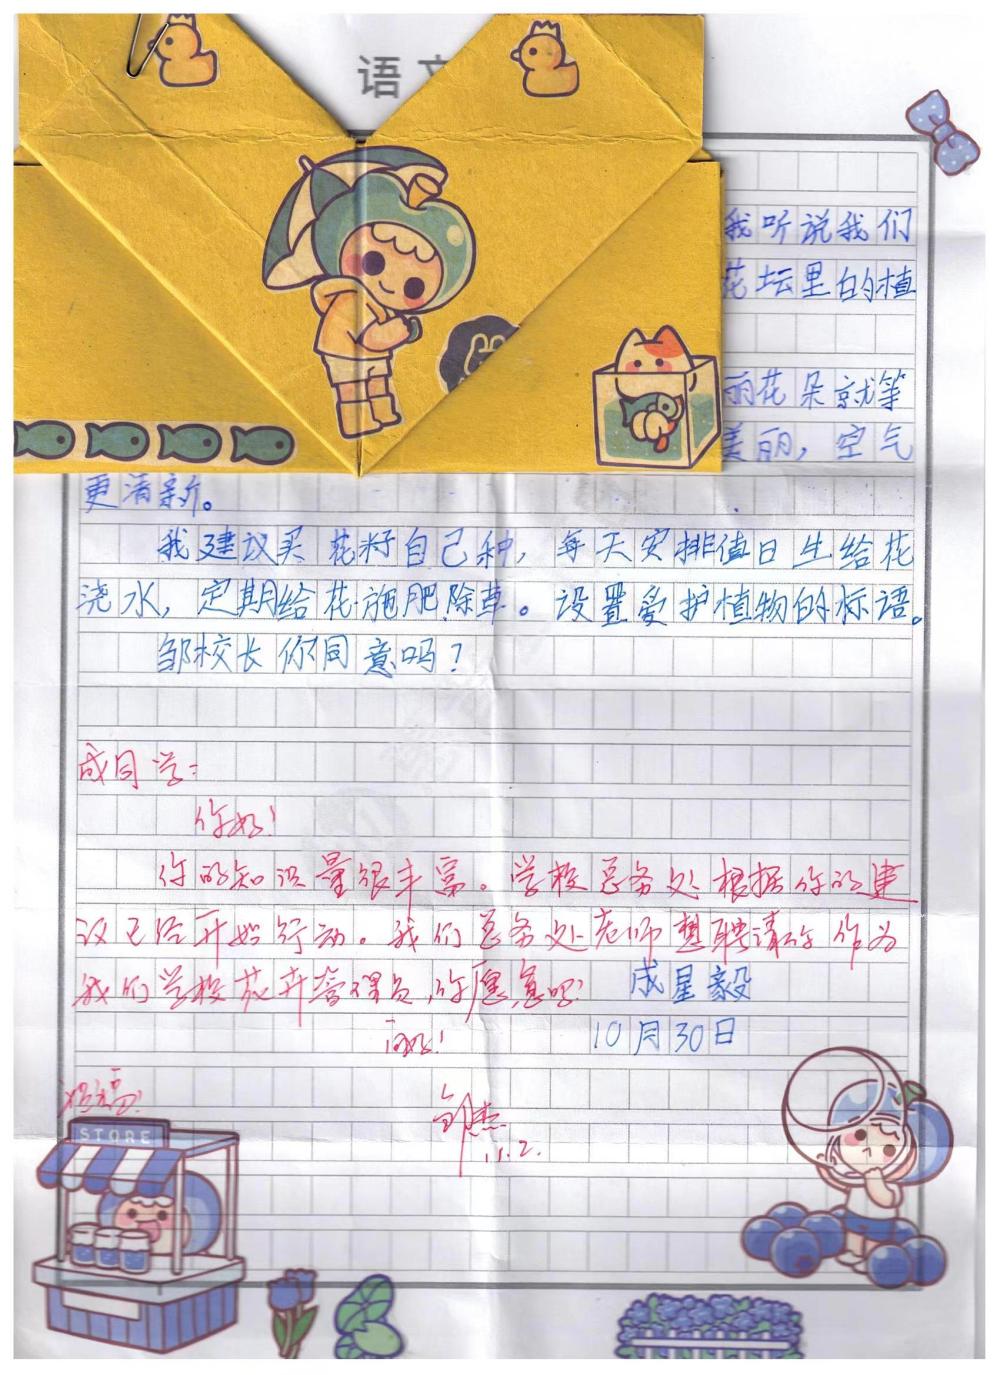 语文
我听说我们
花坛里的植
丽花朵就等
美丽，空气
更清新。
我建议买花籽自己种，每天安排值日生给花
浇水，定期给花施肥除草。设置爱护植物的标语。
邹校长你同意吗？
成同学：
你好！
你的知识量很丰富。学校总务处根据你的建
议已经开始行动。我们总务处老师想聘请你作为
我们学校花卉管理员，你愿意吗？
成星毅
问好！
10月30日
祝福！
邹杰
11.2.
STORE